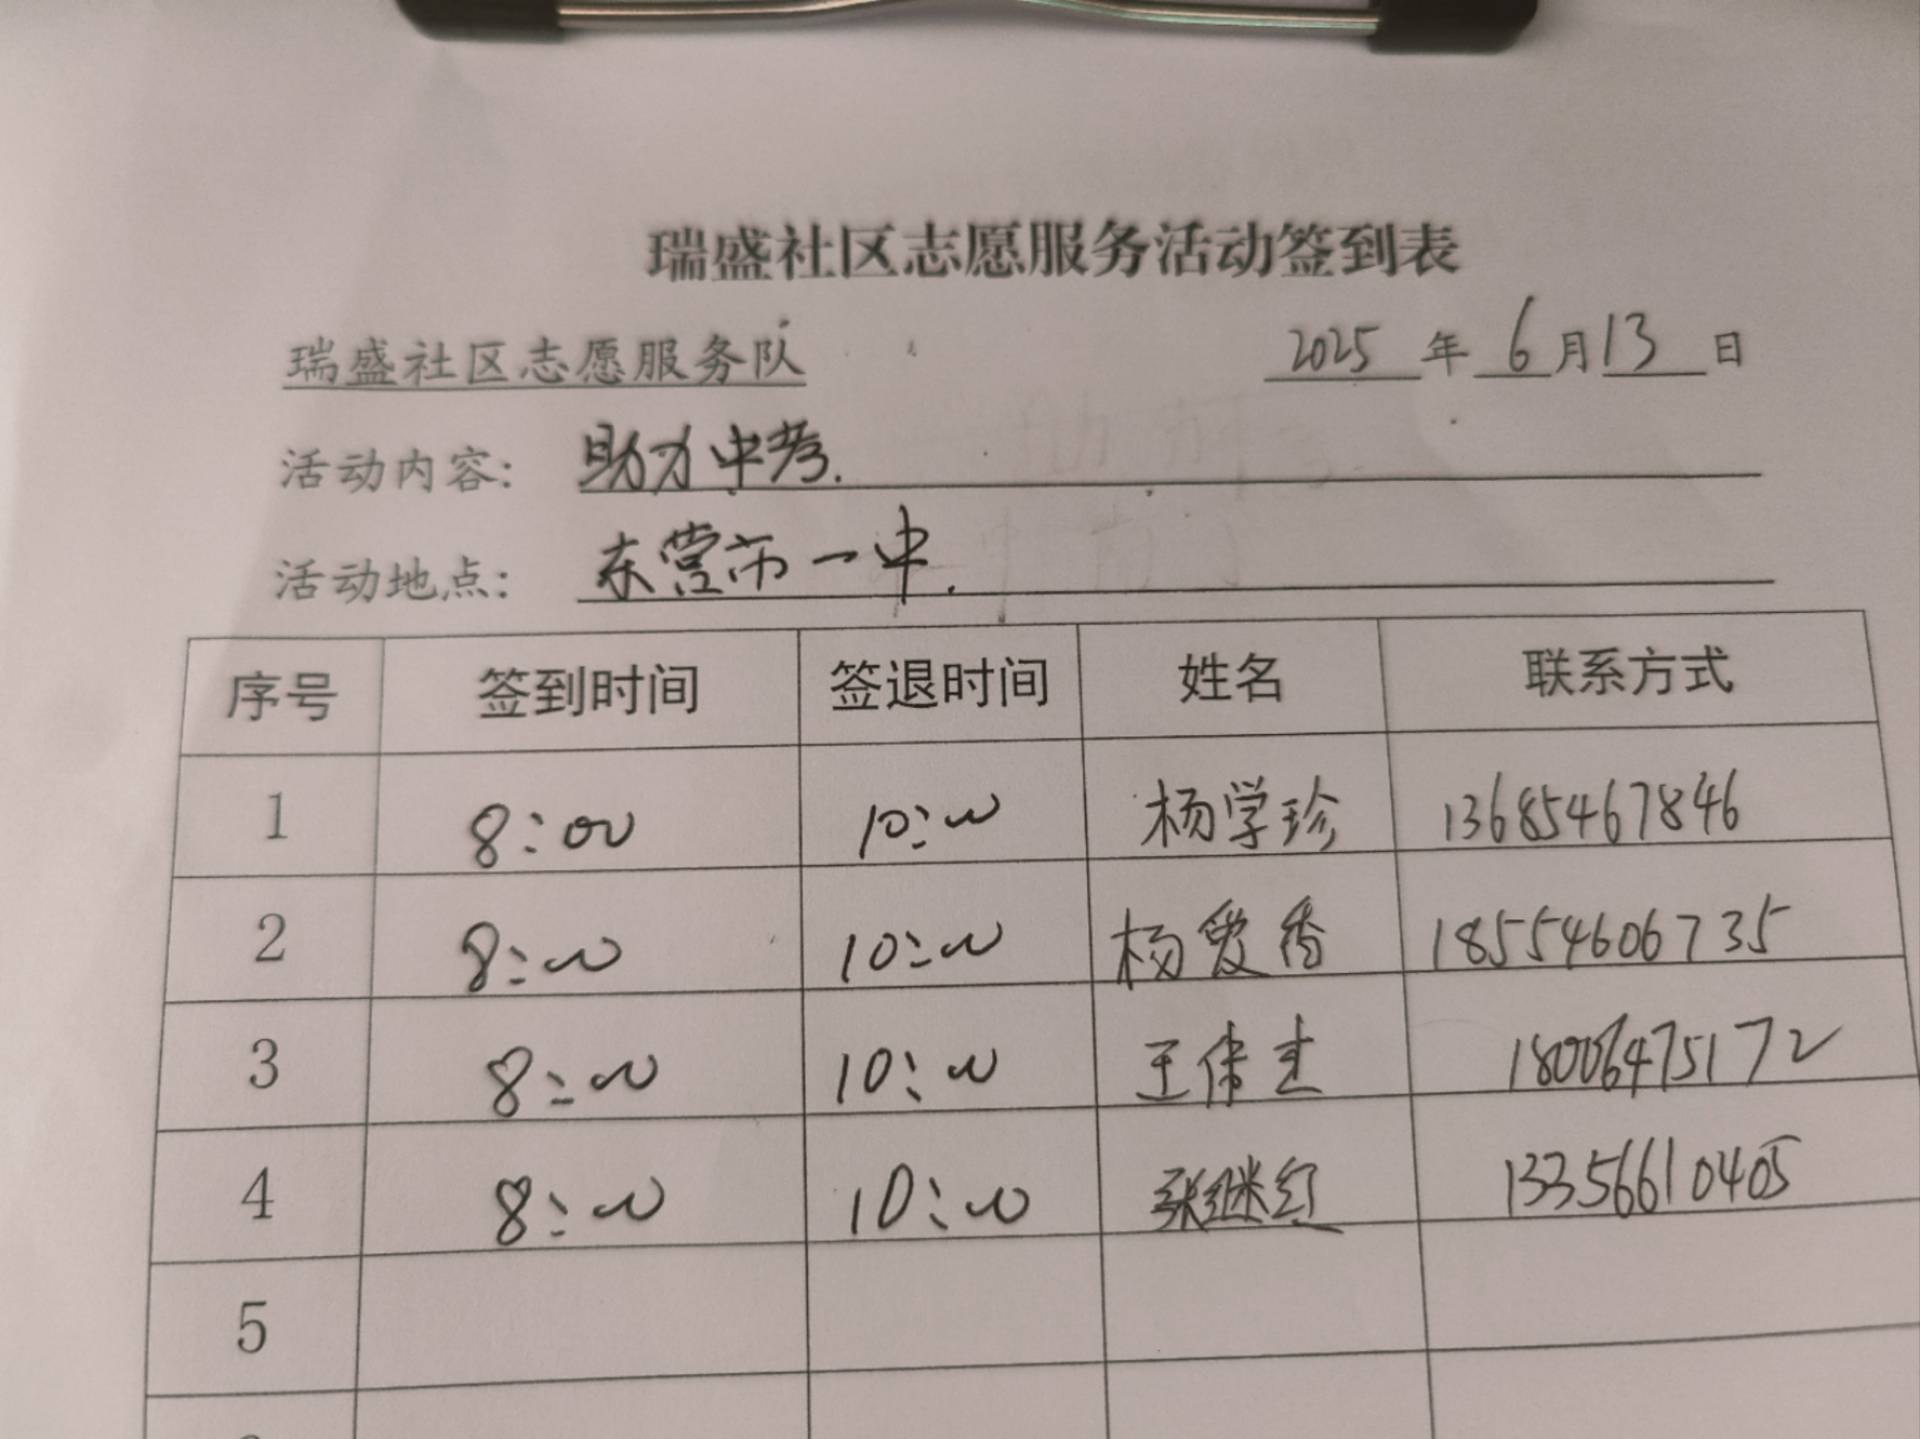 瑞盛社区志愿服务活动签到表
瑞盛社区志愿服务队 2025 年 6 月 13 日
活动内容: 助力中考.
活动地点: 东营市一中.
序号 签到时间 签退时间 姓名 联系方式
1 8:00 10:00 杨学珍 13685467846
2 8:00 10:00 杨爱香 18554606735
3 8:00 10:00 王伟 18006475172
4 8:00 10:00 张继红 13356610405
5